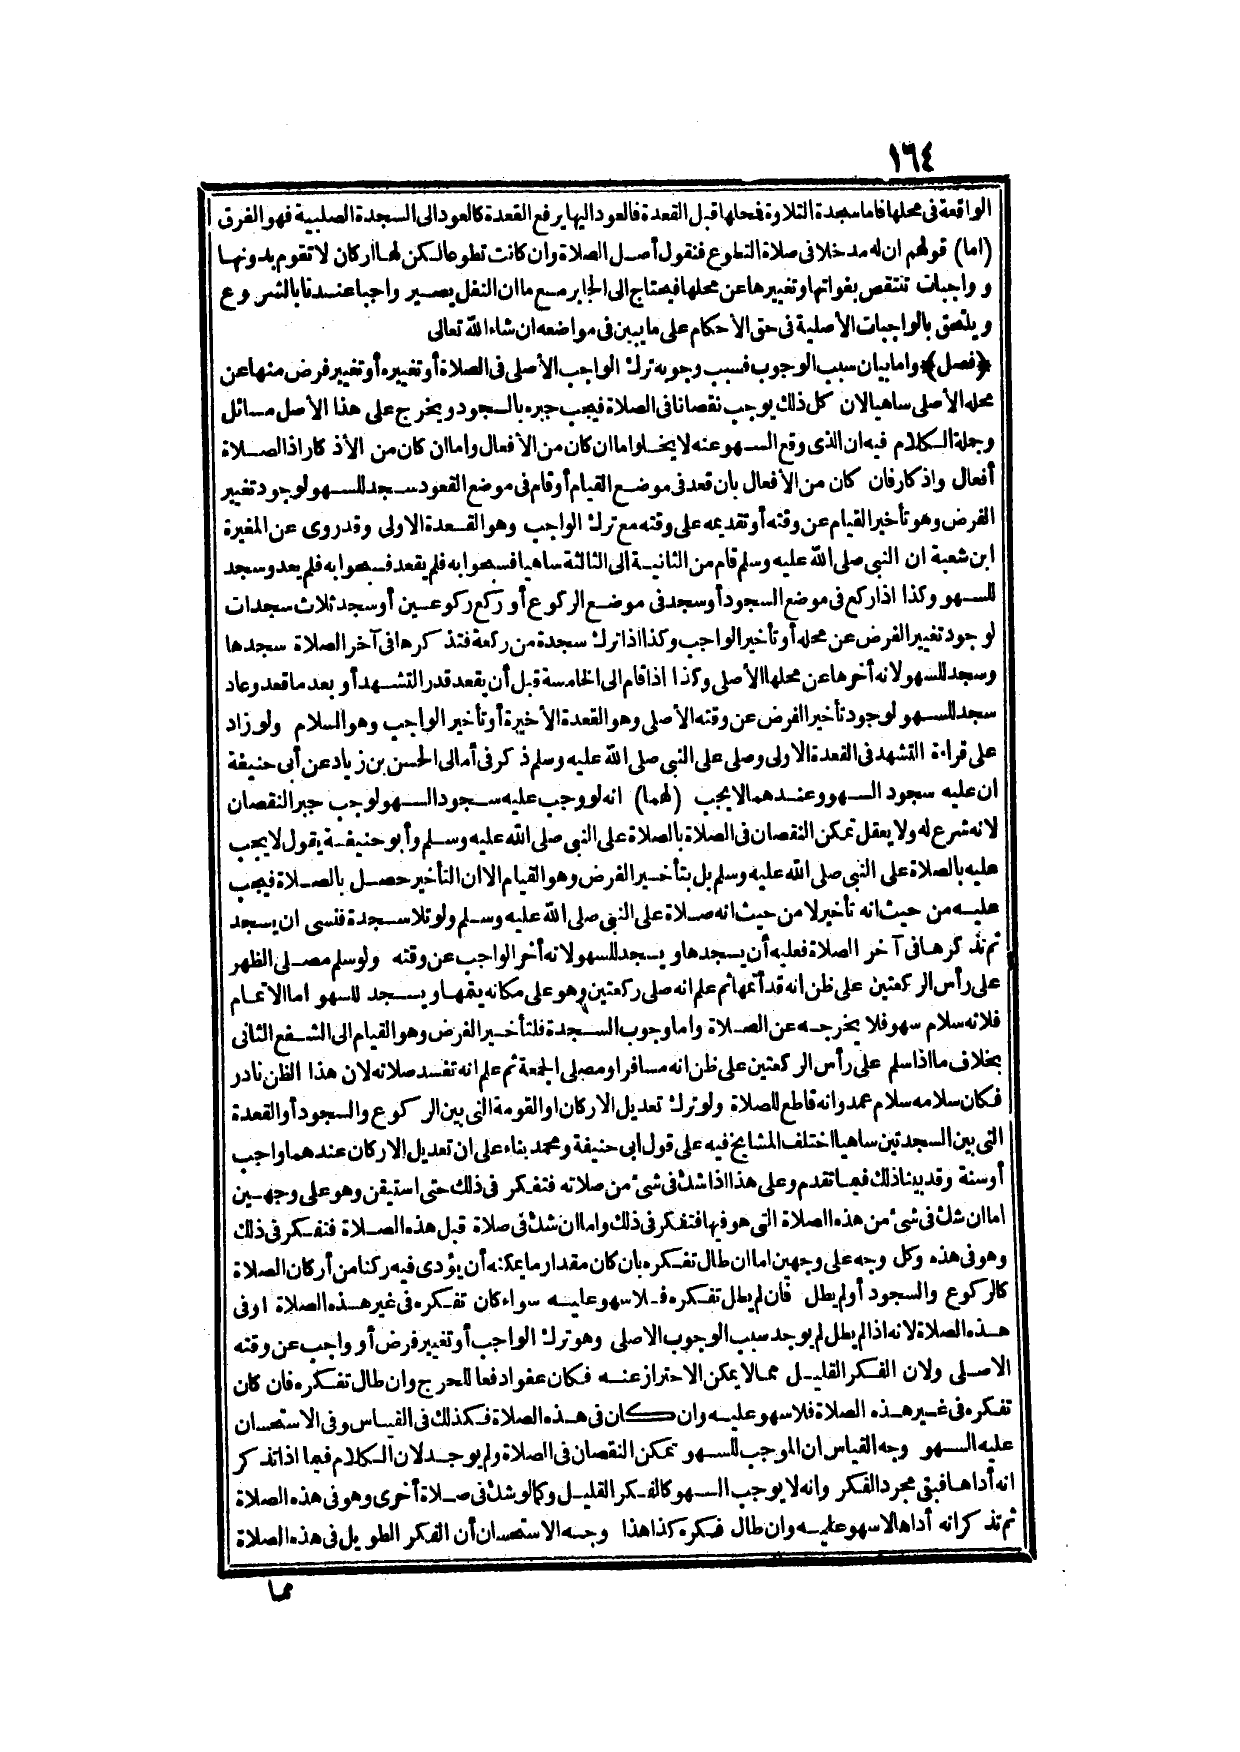 ١٦٤
الواقعة فى محلها فاما سجدة التلاوة فمحلها قبل القعدة فالعود اليها يرفع القعدة كالعود الى السجدة الصلبية فهو الفرق
(اما) قولهم ان له مدخلا فى صلاة التطوع فنقول أصل الصلاة وان كانت تطوعا لكن لها أركان لا تقوم بدونها
و واجبات تنتقص بفواتها وتغييرها عن محلها فيحتاج الى الجابر مع ما ان النفل يصير واجبا عندنا بالشروع
و يلتحق بالواجبات الأصلية فى حق الأحكام على ما يبين فى مواضعه ان شاء الله تعالى
﴿فصل﴾ واما بيان سبب الوجوب فسبب وجوبه ترك الواجب الأصلى فى الصلاة أو تغييره أو تغيير فرض منها عن
محله الأصلى ساهيا لان كل ذلك يوجب نقصانا فى الصلاة فيجب جبره بالسجود ويخرج على هذا الأصل مسائل
وجملة الكلام فيه ان الذى وقع السهو عنه لا يخلوا ما ان كان من الأفعال واما ان كان من الأذكار اذ الصلاة
أفعال واذكار فان كان من الأفعال بان قعد فى موضع القيام أو قام فى موضع القعود سجد للسهو لوجود تغيير
الفرض وهو تأخير القيام عن وقته أو تقديمه على وقته مع ترك الواجب وهو القعدة الاولى وقد روى عن المغيرة
ابن شعبة ان النبى صلى الله عليه وسلم قام من الثانية الى الثالثة ساهيا فسبحوا به فلم يقعد فسبحوا به فلم يعد وسجد
للسهو وكذا اذا ركع فى موضع السجود أو سجد فى موضع الركوع أو ركع ركوعين أو سجد ثلاث سجدات
لوجود تغيير الفرض عن محله أو تأخير الواجب وكذا اذا ترك سجدة من ركعة فتذكرها فى آخر الصلاة سجدها
وسجد للسهو لانه أخرها عن محلها الأصلى وكذا اذا قام الى الخامسة قبل أن يقعد قدر التشهد أو بعد ما قعد وعاد
سجد للسهو لوجود تأخير الفرض عن وقته الأصلى وهو القعدة الأخيرة أو تأخير الواجب وهو السلام ولو زاد
على قراءة التشهد فى القعدة الاولى وصلى على النبى صلى الله عليه وسلم ذكر فى أمالى الحسن بن زياد عن أبى حنيفة
ان عليه سجود السهو وعندهما لا يجب (لهما) انه لو وجب عليه سجود السهو لوجب جبر النقصان
لانه شرع له ولا يعقل تمكن النقصان فى الصلاة بالصلاة على النبى صلى الله عليه وسلم وأبو حنيفة يقول لا يجب
عليه بالصلاة على النبى صلى الله عليه وسلم بل بتأخير الفرض وهو القيام الا ان التأخير حصل بالصلاة فيجب
عليه من حيث انه تأخير لا من حيث انه صلاة على النبى صلى الله عليه وسلم ولو تلا سجدة فنسى ان يسجد
ثم تذكرها فى آخر الصلاة فعليه أن يسجدها و يسجد للسهو لانه أخر الواجب عن وقته ولو سلم مصلى الظهر
على رأس الركعتين على ظن انه قد أتمها ثم علم انه صلى ركعتين وهو على مكانه يتمها و يسجد للسهو اما الاتمام
فلانه سلام سهو فلا يخرجه عن الصلاة واما وجوب السجدة فلتأخير الفرض وهو القيام الى الشفع الثانى
بخلاف ما اذا سلم على رأس الركعتين على ظن انه مسافر او مصلى الجمعة ثم علم انه تفسد صلاته لان هذا الظن نادر
فكان سلامه سلام عمد وانه قاطع للصلاة ولو ترك تعديل الاركان او القومة التى بين الركوع والسجود أو القعدة
التى بين السجدتين ساهيا اختلف المشايخ فيه على قول ابى حنيفة ومحمد بناء على ان تعديل الاركان عندهما واجب
أو سنة وقد بينا ذلك فيما تقدم وعلى هذا اذا شك فى شئ من صلاته فتفكر فى ذلك حتى استيقن وهو على وجهين
اما ان شك فى شئ من هذه الصلاة التى هو فيها فتفكر فى ذلك واما ان شك فى صلاة قبل هذه الصلاة فتفكر فى ذلك
وهو فى هذه وكل وجه على وجهين اما ان طال تفكره بان كان مقدار ما يمكنه أن يؤدى فيه ركنا من أركان الصلاة
كالركوع والسجود أو لم يطل فان لم يطل تفكره فلا سهو عليه سواء كان تفكره فى غير هذه الصلاة او فى
هذه الصلاة لانه اذا لم يطل لم يوجد سبب الوجوب الاصلى وهو ترك الواجب أو تغيير فرض أو واجب عن وقته
الاصلى ولان الفكر القليل مما لا يمكن الاحتراز عنه فكان عفوا دفعا للحرج وان طال تفكره فان كان
تفكره فى غير هذه الصلاة فلا سهو عليه وان كان فى هذه الصلاة فكذلك فى القياس وفى الاستحسان
عليه السهو وجه القياس ان الموجب للسهو تمكن النقصان فى الصلاة ولم يوجد لان الكلام فيما اذا تذكر
انه أداها فبقى مجرد الفكر وانه لا يوجب السهو كالفكر القليل وكما لو شك فى صلاة أخرى وهو فى هذه الصلاة
ثم تذكر انه أداها لا سهو عليه وان طال فكره كذا هذا وجه الاستحسان أن الفكر الطويل فى هذه الصلاة
مما